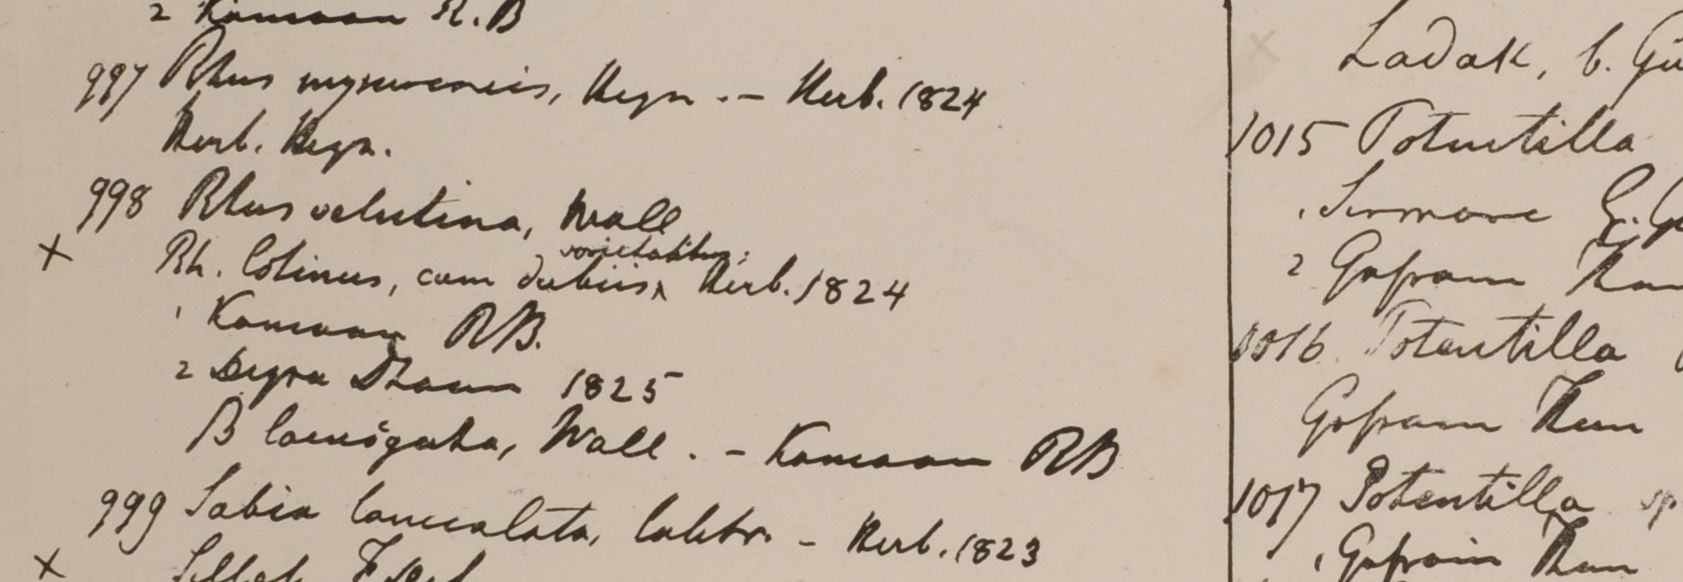 2 Kamaon R.B
997 Rhus mysurensis, Heyn. - Herb. 1824
Herb. Heyn.
998 Rhus velutina, Wall
varietatibus;
Rh. Cotinus, cum dubiis, Herb. 1824
1 Kamaon RB.
2 Deyra Dhaun 1825
B laevigata, Wall. - Kamaon RB
999 Sabia lanceolata, Colebr. - Herb. 1823
Ladak, b.
1015 Potentilla
1 Sirmore
2 Gosram
1016 Potentilla
Gosram
1017 Potentilla sp.
1